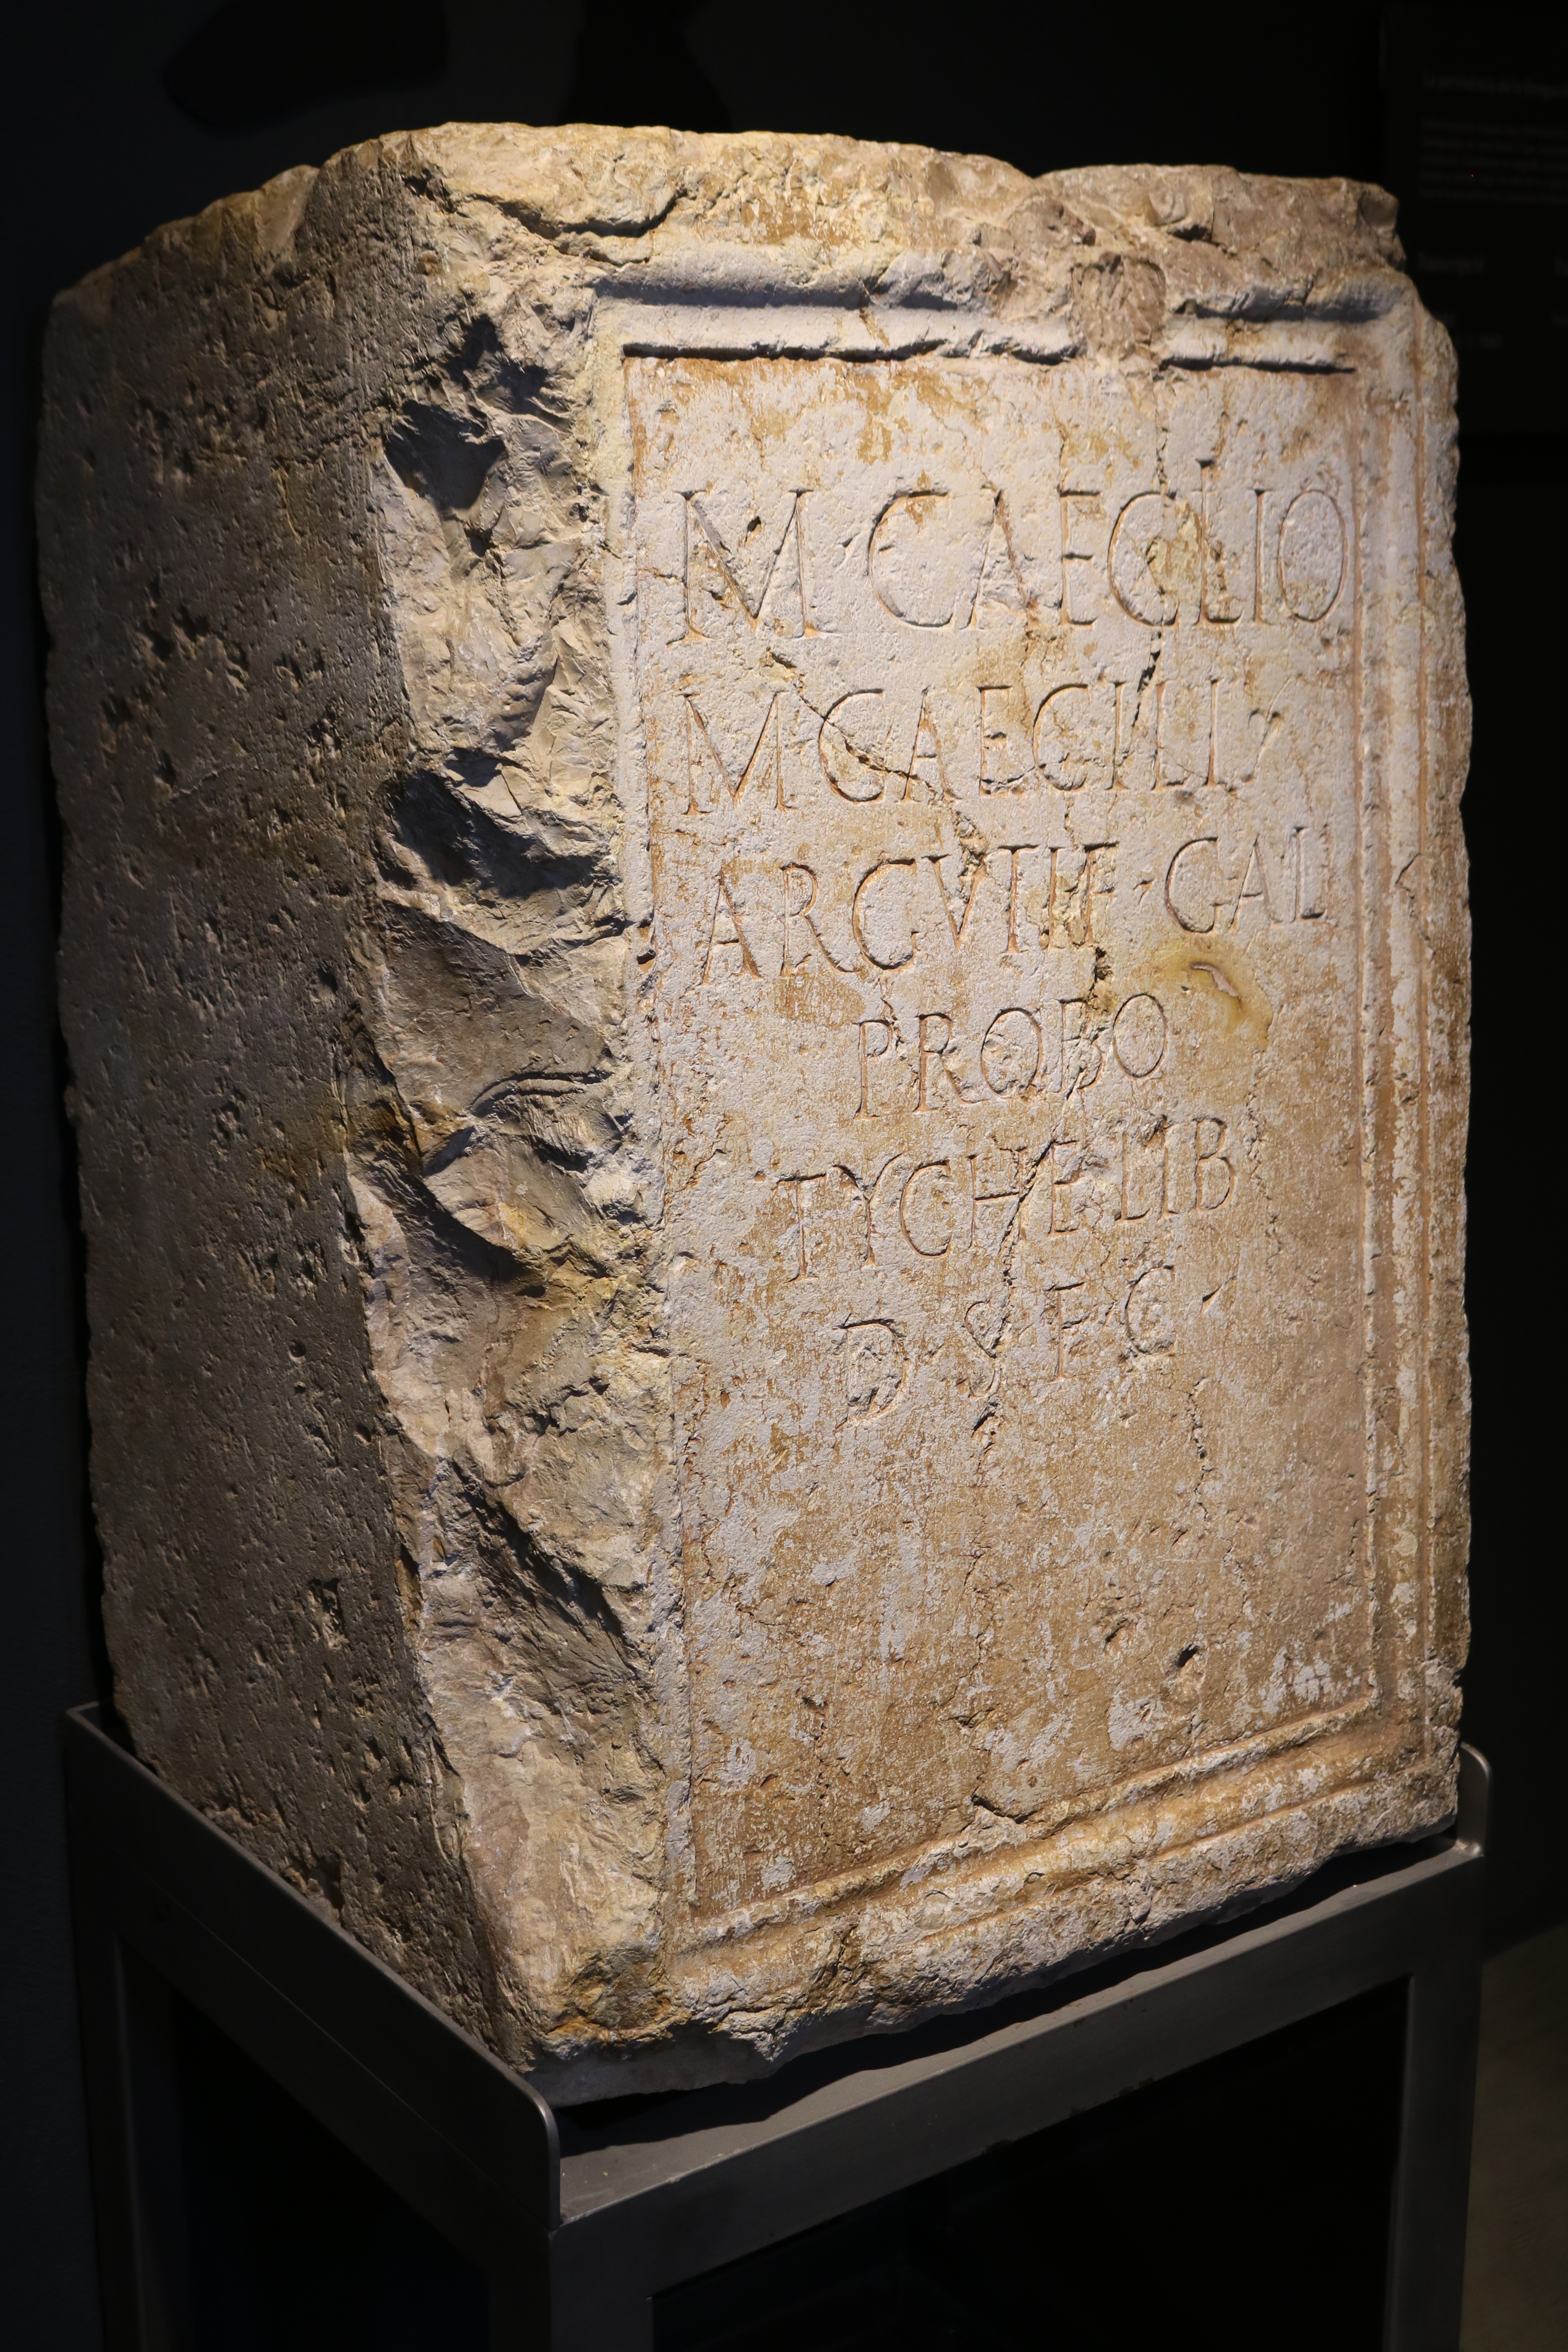 M CAECILIO
M CAECILI
ARGVTI F · GAL
PROBO
TYCHE LIB
D · S · F C